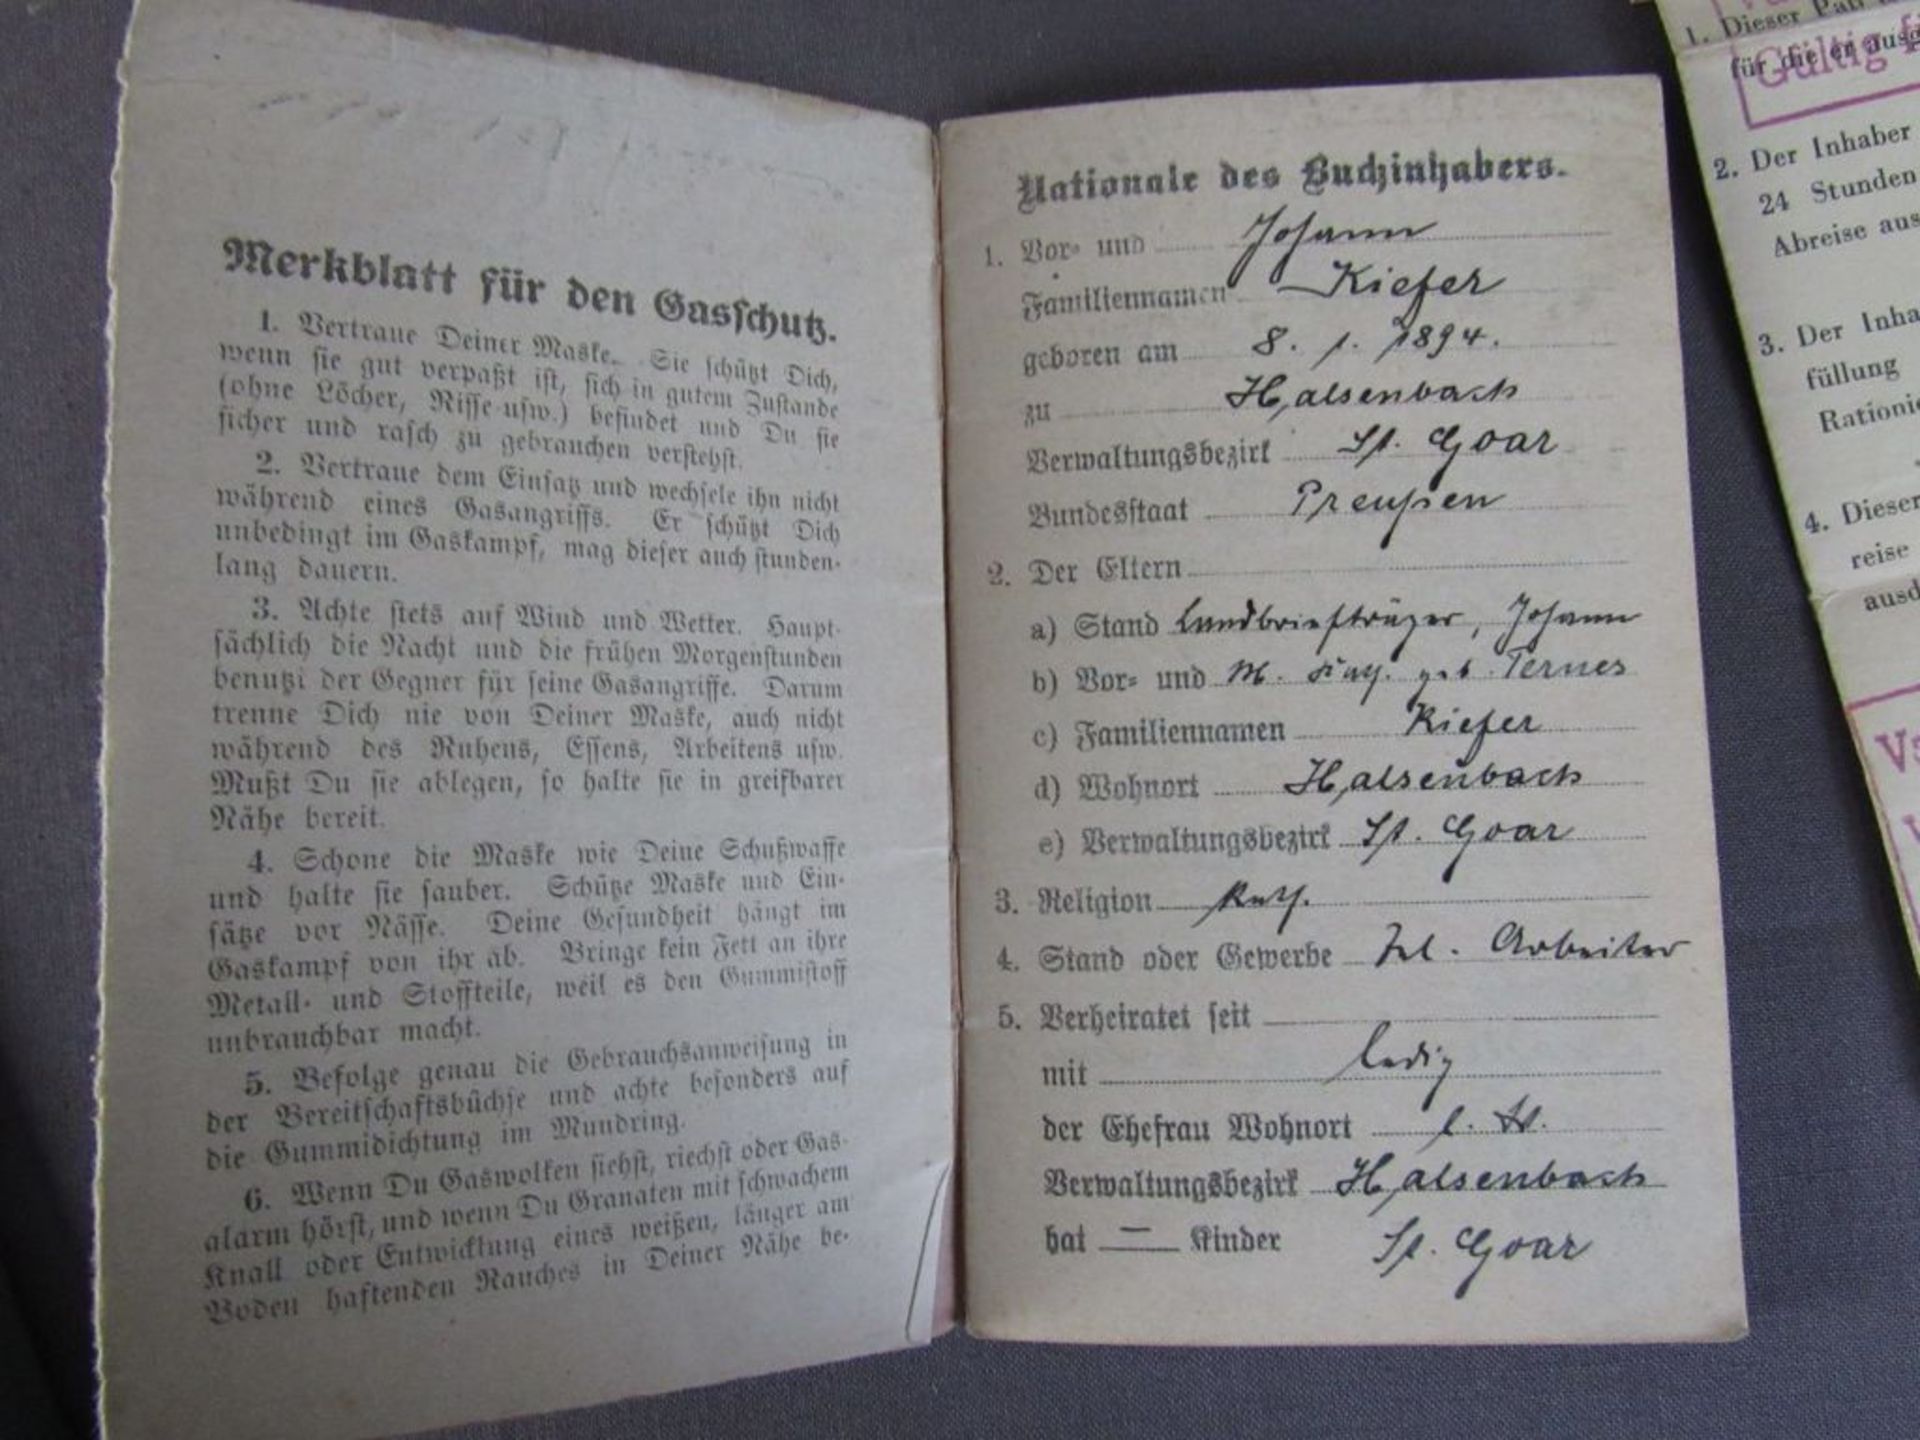 Merkblatt für den Gasschutz.
1. Vertraue Deiner Maske. Sie schützt Dich,
wenn sie gut verpaßt ist, sich in gutem Zustande
(ohne Löcher, Risse usw.) befindet und Du sie
sicher und rasch zu gebrauchen verstehst.
2. Vertraue dem Einsatz und wechsele ihn nicht
während eines Gasangriffs. Er schützt Dich
unbedingt im Gaskampf, mag dieser auch stunden-
lang dauern.
3. Achte stets auf Wind und Wetter. Haupt-
sächlich die Nacht und die frühen Morgenstunden
benutzt der Gegner für seine Gasangriffe. Darum
trenne Dich nie von Deiner Maske, auch nicht
während des Ruhens, Essens, Arbeitens usw.
Mußt Du sie ablegen, so halte sie in greifbarer
Nähe bereit.
4. Schone die Maske wie Deine Schußwaffe
und halte sie sauber. Schütze Maske und Ein-
sätze vor Nässe. Deine Gesundheit hängt im
Gaskampf von ihr ab. Bringe kein Fett an ihre
Metall- und Stoffteile, weil es den Gummistoff
unbrauchbar macht.
5. Befolge genau die Gebrauchsanweisung in
der Bereitschaftsbüchse und achte besonders auf
die Gummidichtung im Mundring.
6. Wenn Du Gaswolken siehst, riechst oder Gas-
alarm hörst, und wenn Du Granaten mit schwachem
Knall oder Entwicklung eines weißen, länger am
Boden haftenden Rauches in Deiner Nähe be-
Nationale des Buchinhabers.
1. Vor- und Johann
Familiennamen Kiefer
geboren am 8. 1. 1894.
zu Halsenbach
Verwaltungsbezirk St. Goar
Bundesstaat Preußen
2. Der Eltern
a) Stand Landbriefträger, Johann
b) Vor- und M. Kath. geb. Ternes
c) Familiennamen Kiefer
d) Wohnort Halsenbach
e) Verwaltungsbezirk St. Goar
3. Religion kath.
4. Stand oder Gewerbe Arbeiter
5. Verheiratet seit
mit ledig
der Ehefrau Wohnort
Verwaltungsbezirk Halsenbach
hat — Kinder St. Goar
1. Dieser Paß
für die er ausg
Gültig f
2. Der Inhaber
24 Stunden
Abreise aus
3. Der Inha
füllung
Rationi
4. Dieser
reise
ausd